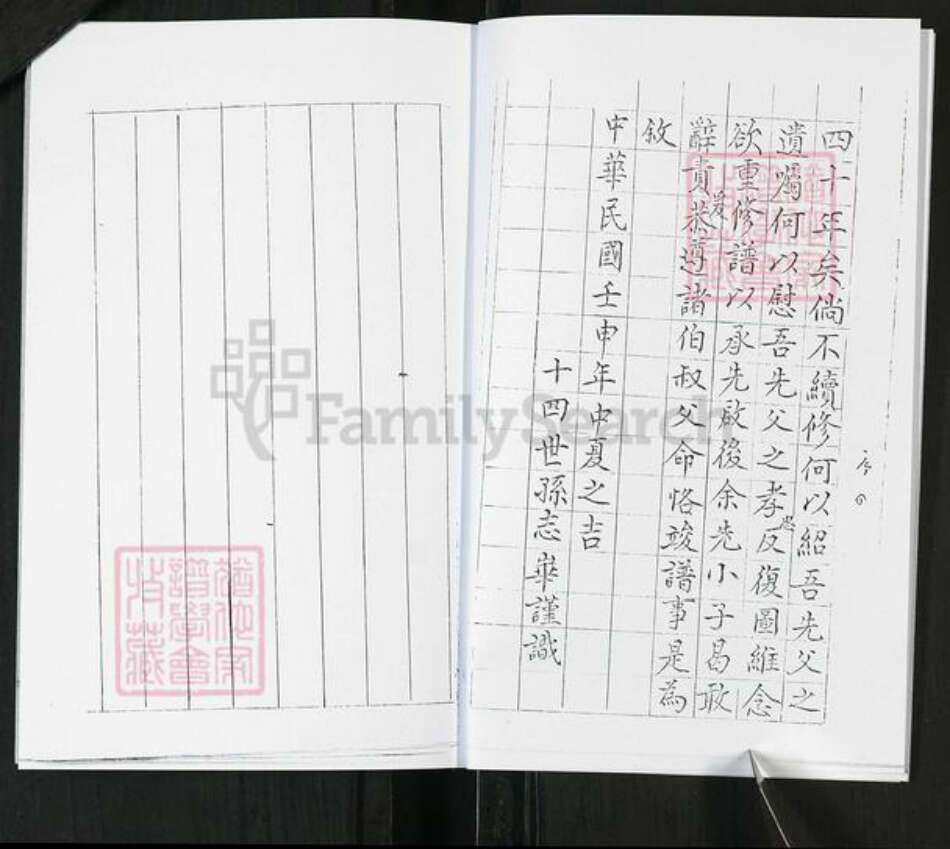 四十年矣倘不續修何以紹吾先父之
遺囑何以慰吾先父之孝思反復圖維念
欲重修譜以承先啟後余先小子曷敢
辭責爰恭遵諸伯叔父命恪竣譜事是為
敘
中華民國壬申年中夏之吉
十四世孫志崋謹識
序
FamilySearch
譜學會
收藏